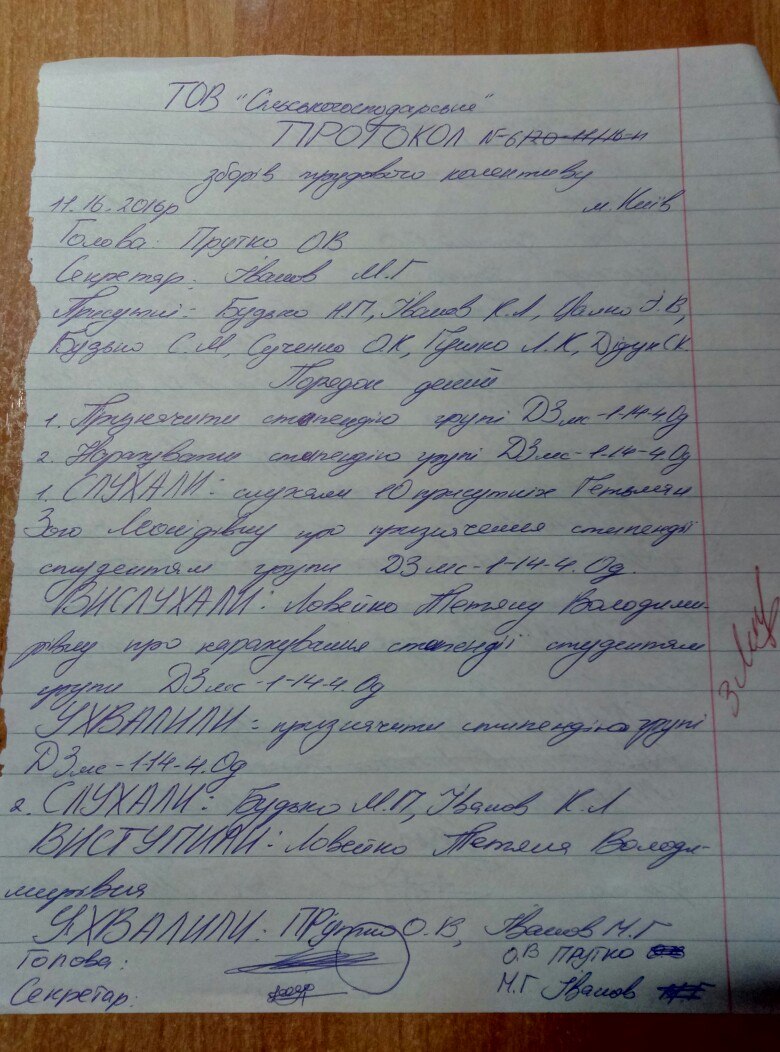 ТОВ "Сільськогосподарське"
ПРОТОКОЛ №6
зборів трудового колективу
11.16.2016р м.Київ
Голова: Прутко ОВ
Секретар: Іванов М.Г
Присутні: Будько Н.П, Іванов К.Л, І.В,
Будько С.М, Сученко О.К, Гушко Л.К, Дідун С.К.
Порядок денний
1. Призначити стипендію групі ДЗмс-1-14-4.Од
2. Нарахувати стипендію групі ДЗмс-1-14-4.Од
1. СЛУХАЛИ: слухали 10 присутніх Гетьман
Зою Леонідівну про призначення стипендії
студентям групи ДЗмс-1-14-4.Од.
ВИСЛУХАЛИ: Ловейко Тетяну Володими-
рівну про нарахування стипендії студентям
групи ДЗмс-1-14-4.Од
УХВАЛИЛИ: призначити стипендію групі
ДЗмс-1-14-4.Од
2. СЛУХАЛИ: Будько М.П, Іванов К.Л
ВИСТУПИЛИ: Ловейко Тетяна Володи-
мирівня
УХВАЛИЛИ: ПРутко О.В, Іванов М.Г
Голова: О.В ПРУТКО
Секретар: М.Г Іванов